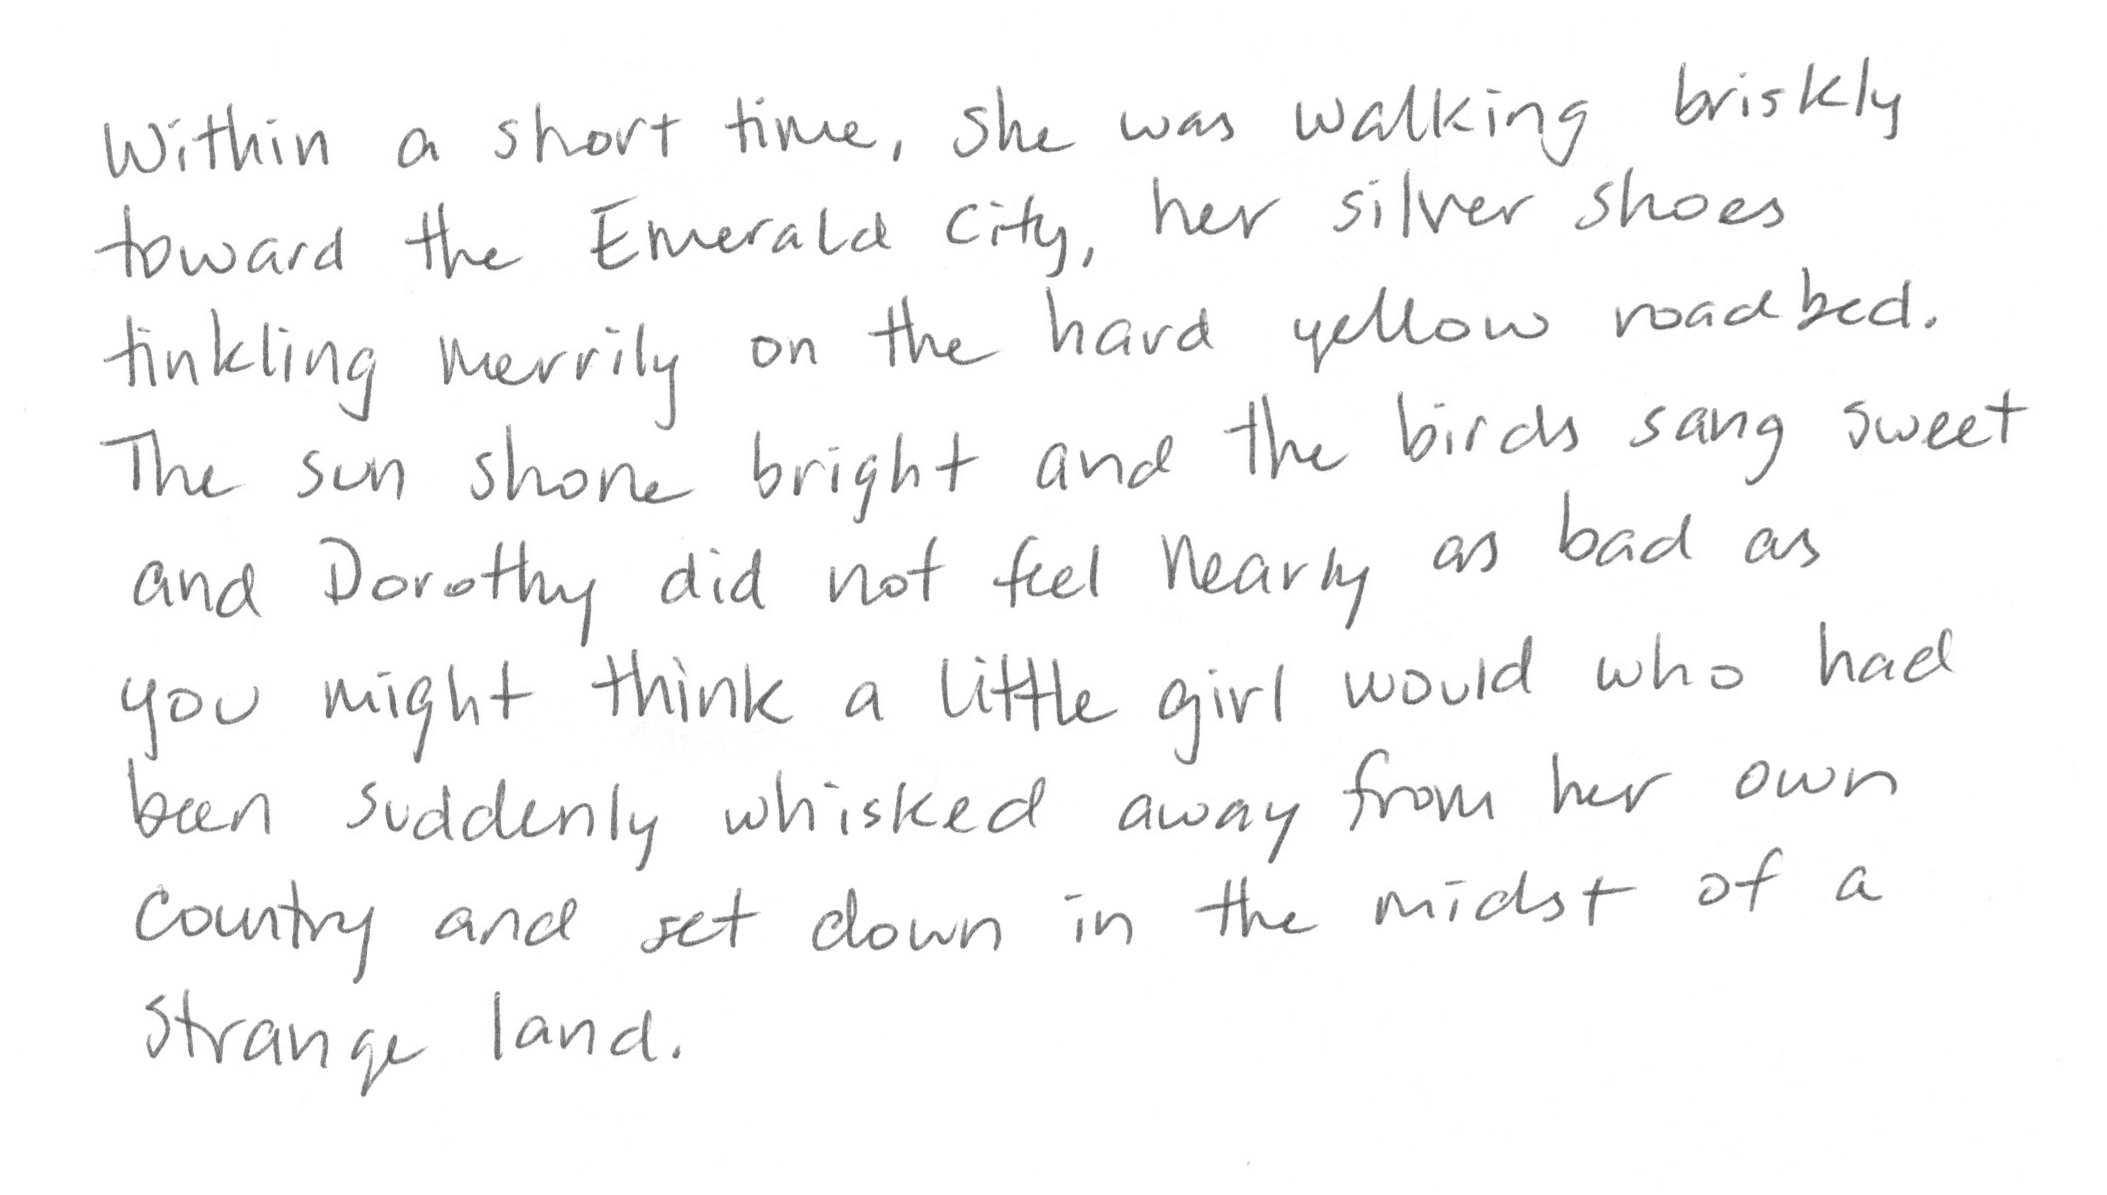 Within a short time, she was walking briskly
toward the Emerald City, her silver shoes
tinkling merrily on the hard yellow roadbed.
The sun shone bright and the birds sang sweet
and Dorothy did not feel nearly as bad as
you might think a little girl would who had
been suddenly whisked away from her own
country and set down in the midst of a
strange land.